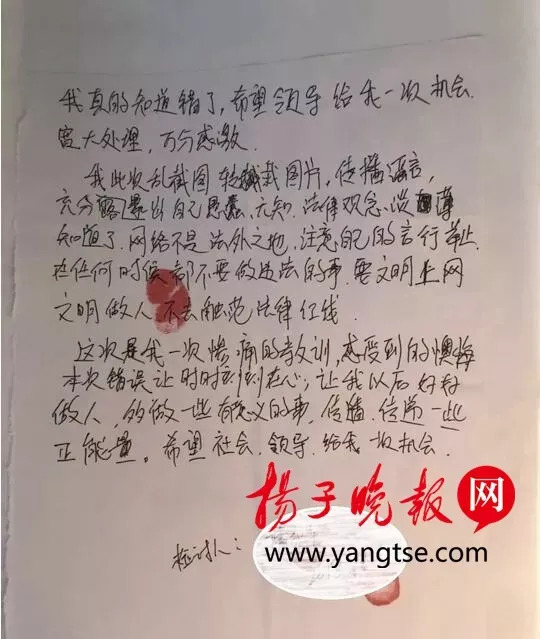 我真的知道错了,希望领导给我一次机会.
宽大处理,万分感激.
我此次乱截图 转载图片,传播谣言,
充分暴露出自己愚蠢、无知.法律观念.淡薄
知道了.网络不是法外之地.注意自己的言行举止.
在任何时侯都不要做违法的事.要文明上网
文明做人 不去触范法律红线.
这次是我一次惨痛的教训,感受到的懊悔
本次错误让时时刻刻在心;让我以后好好
做人,多做一些有意义的事.传播.传递一些
正能量。希望社会.领导.给我一次机会.
扬子晚报网
检讨人:
www.yangtse.com